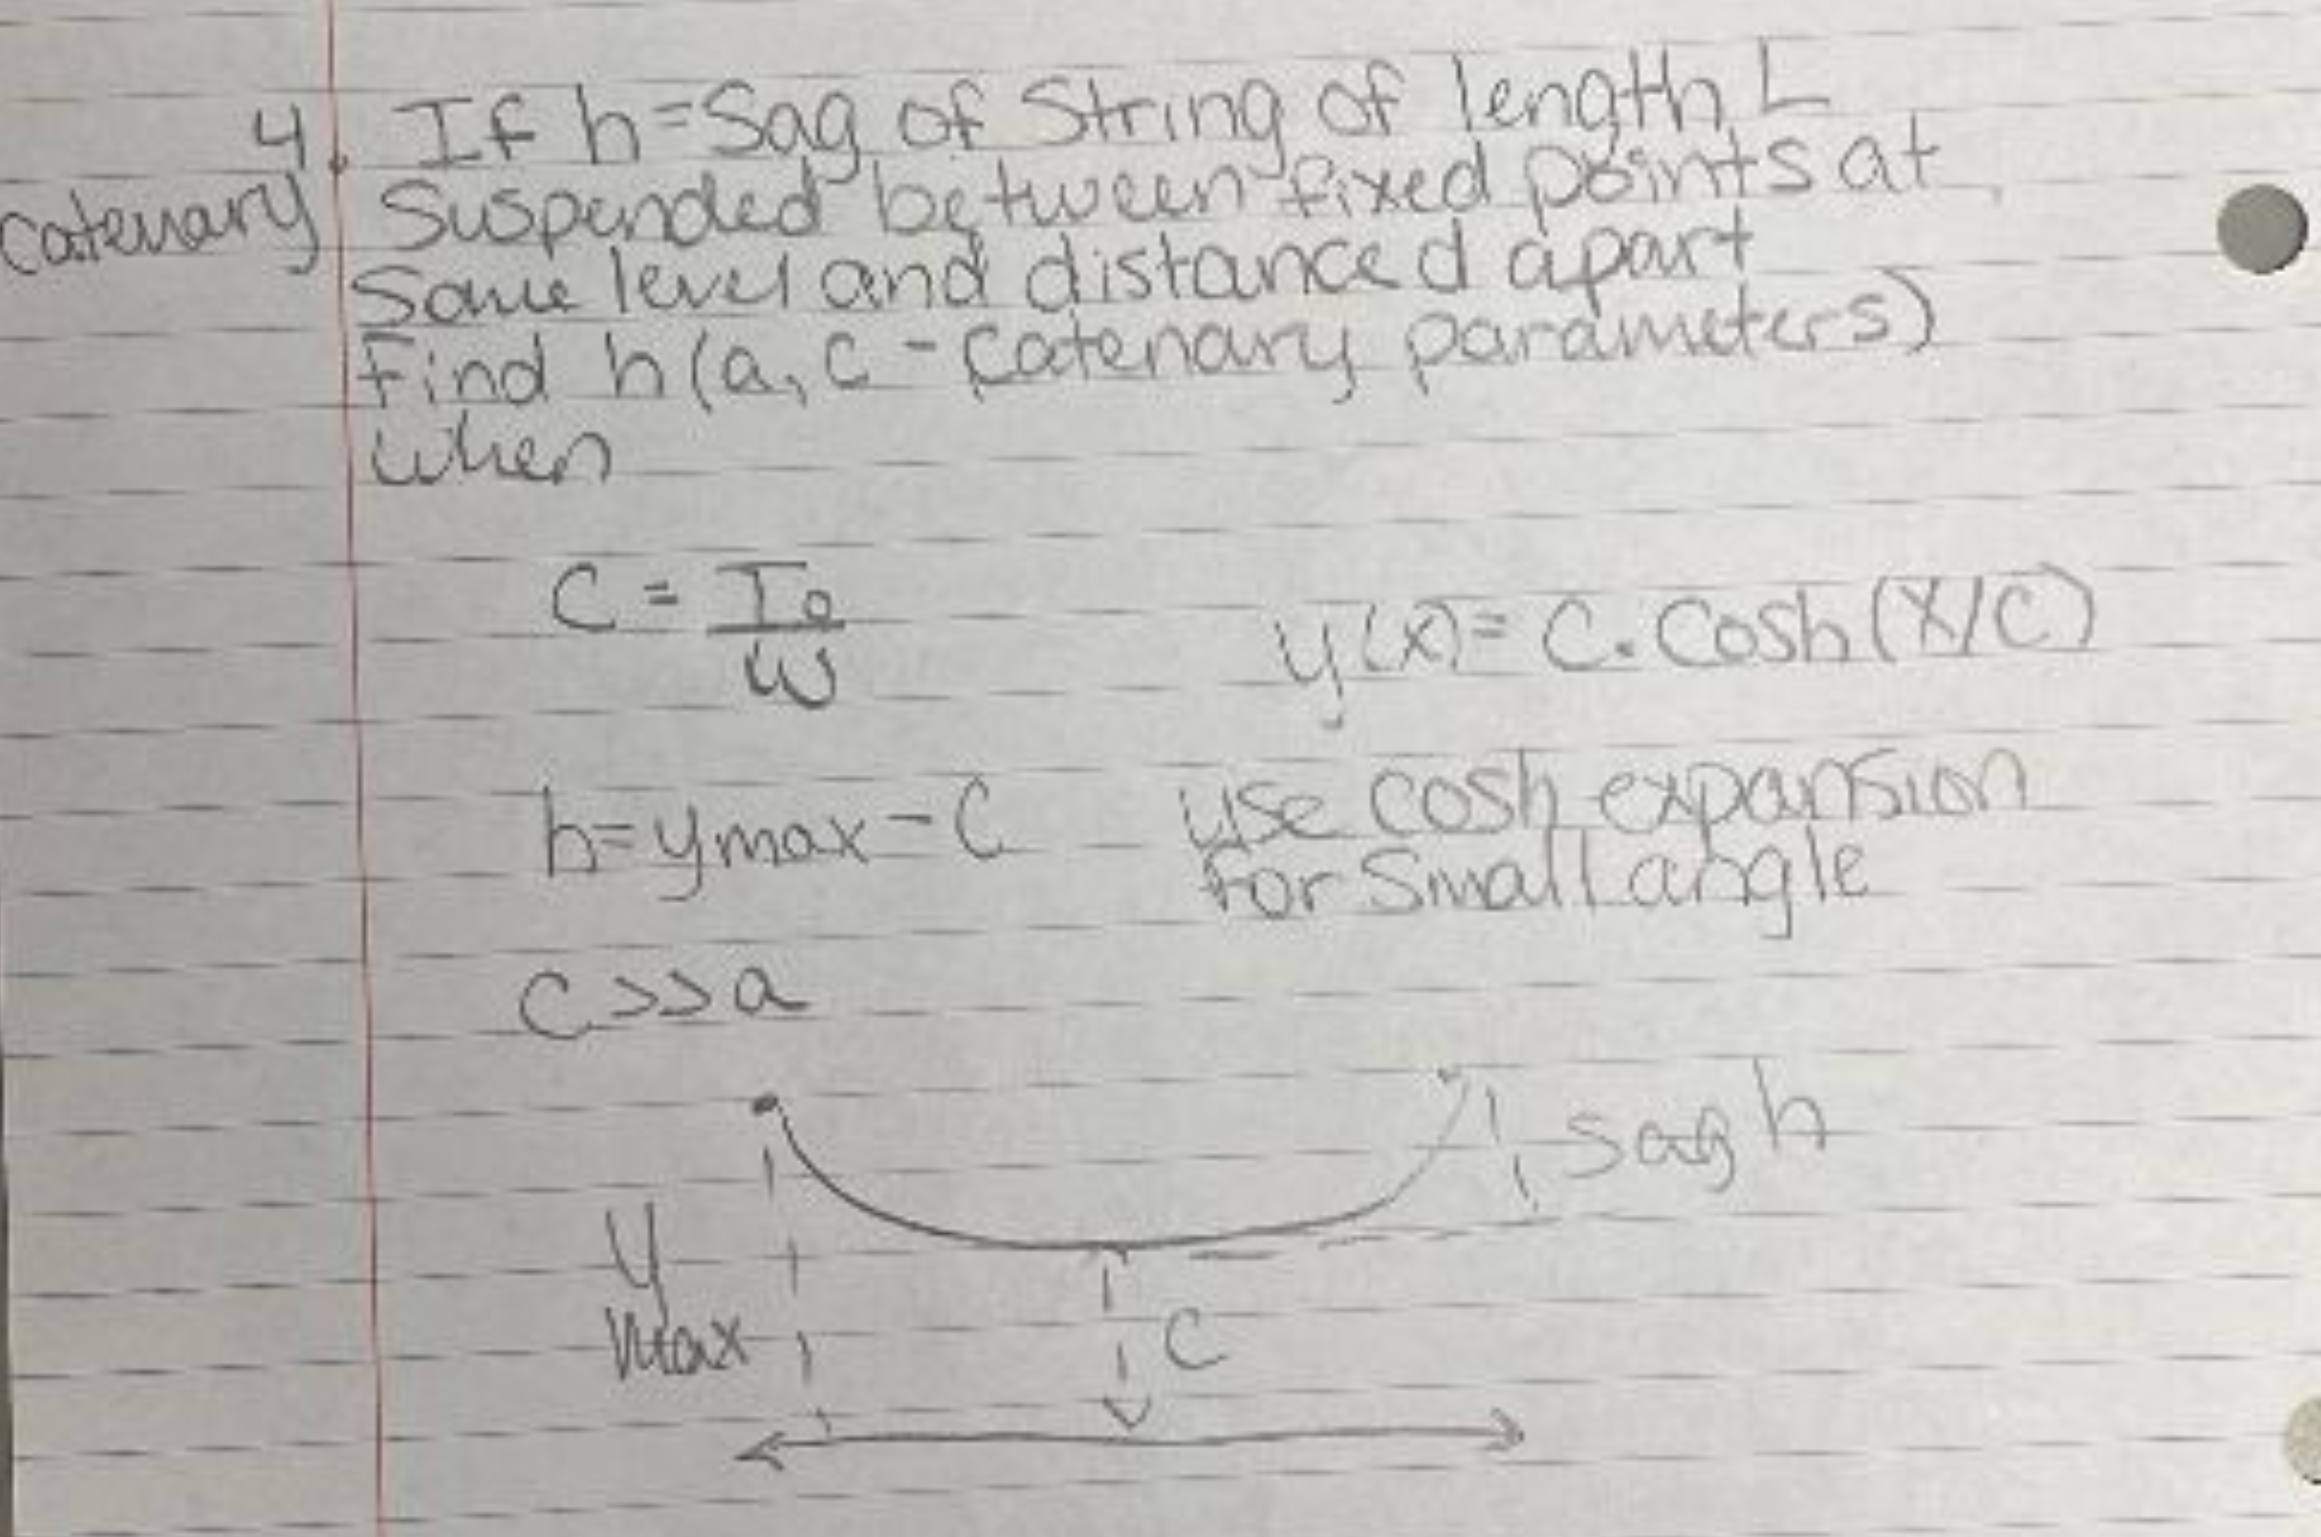 4. If h=Sag of String of length L
Catenary Suspended between fixed points at
Same level and distance d apart
Find h(a, c - Catenary parameters)
when
C = To
w
y(x)= C. Cosh(X/C)
h=ymax-C
use cosh expansion
for Small angle
C>>a
sag h
y
max
C